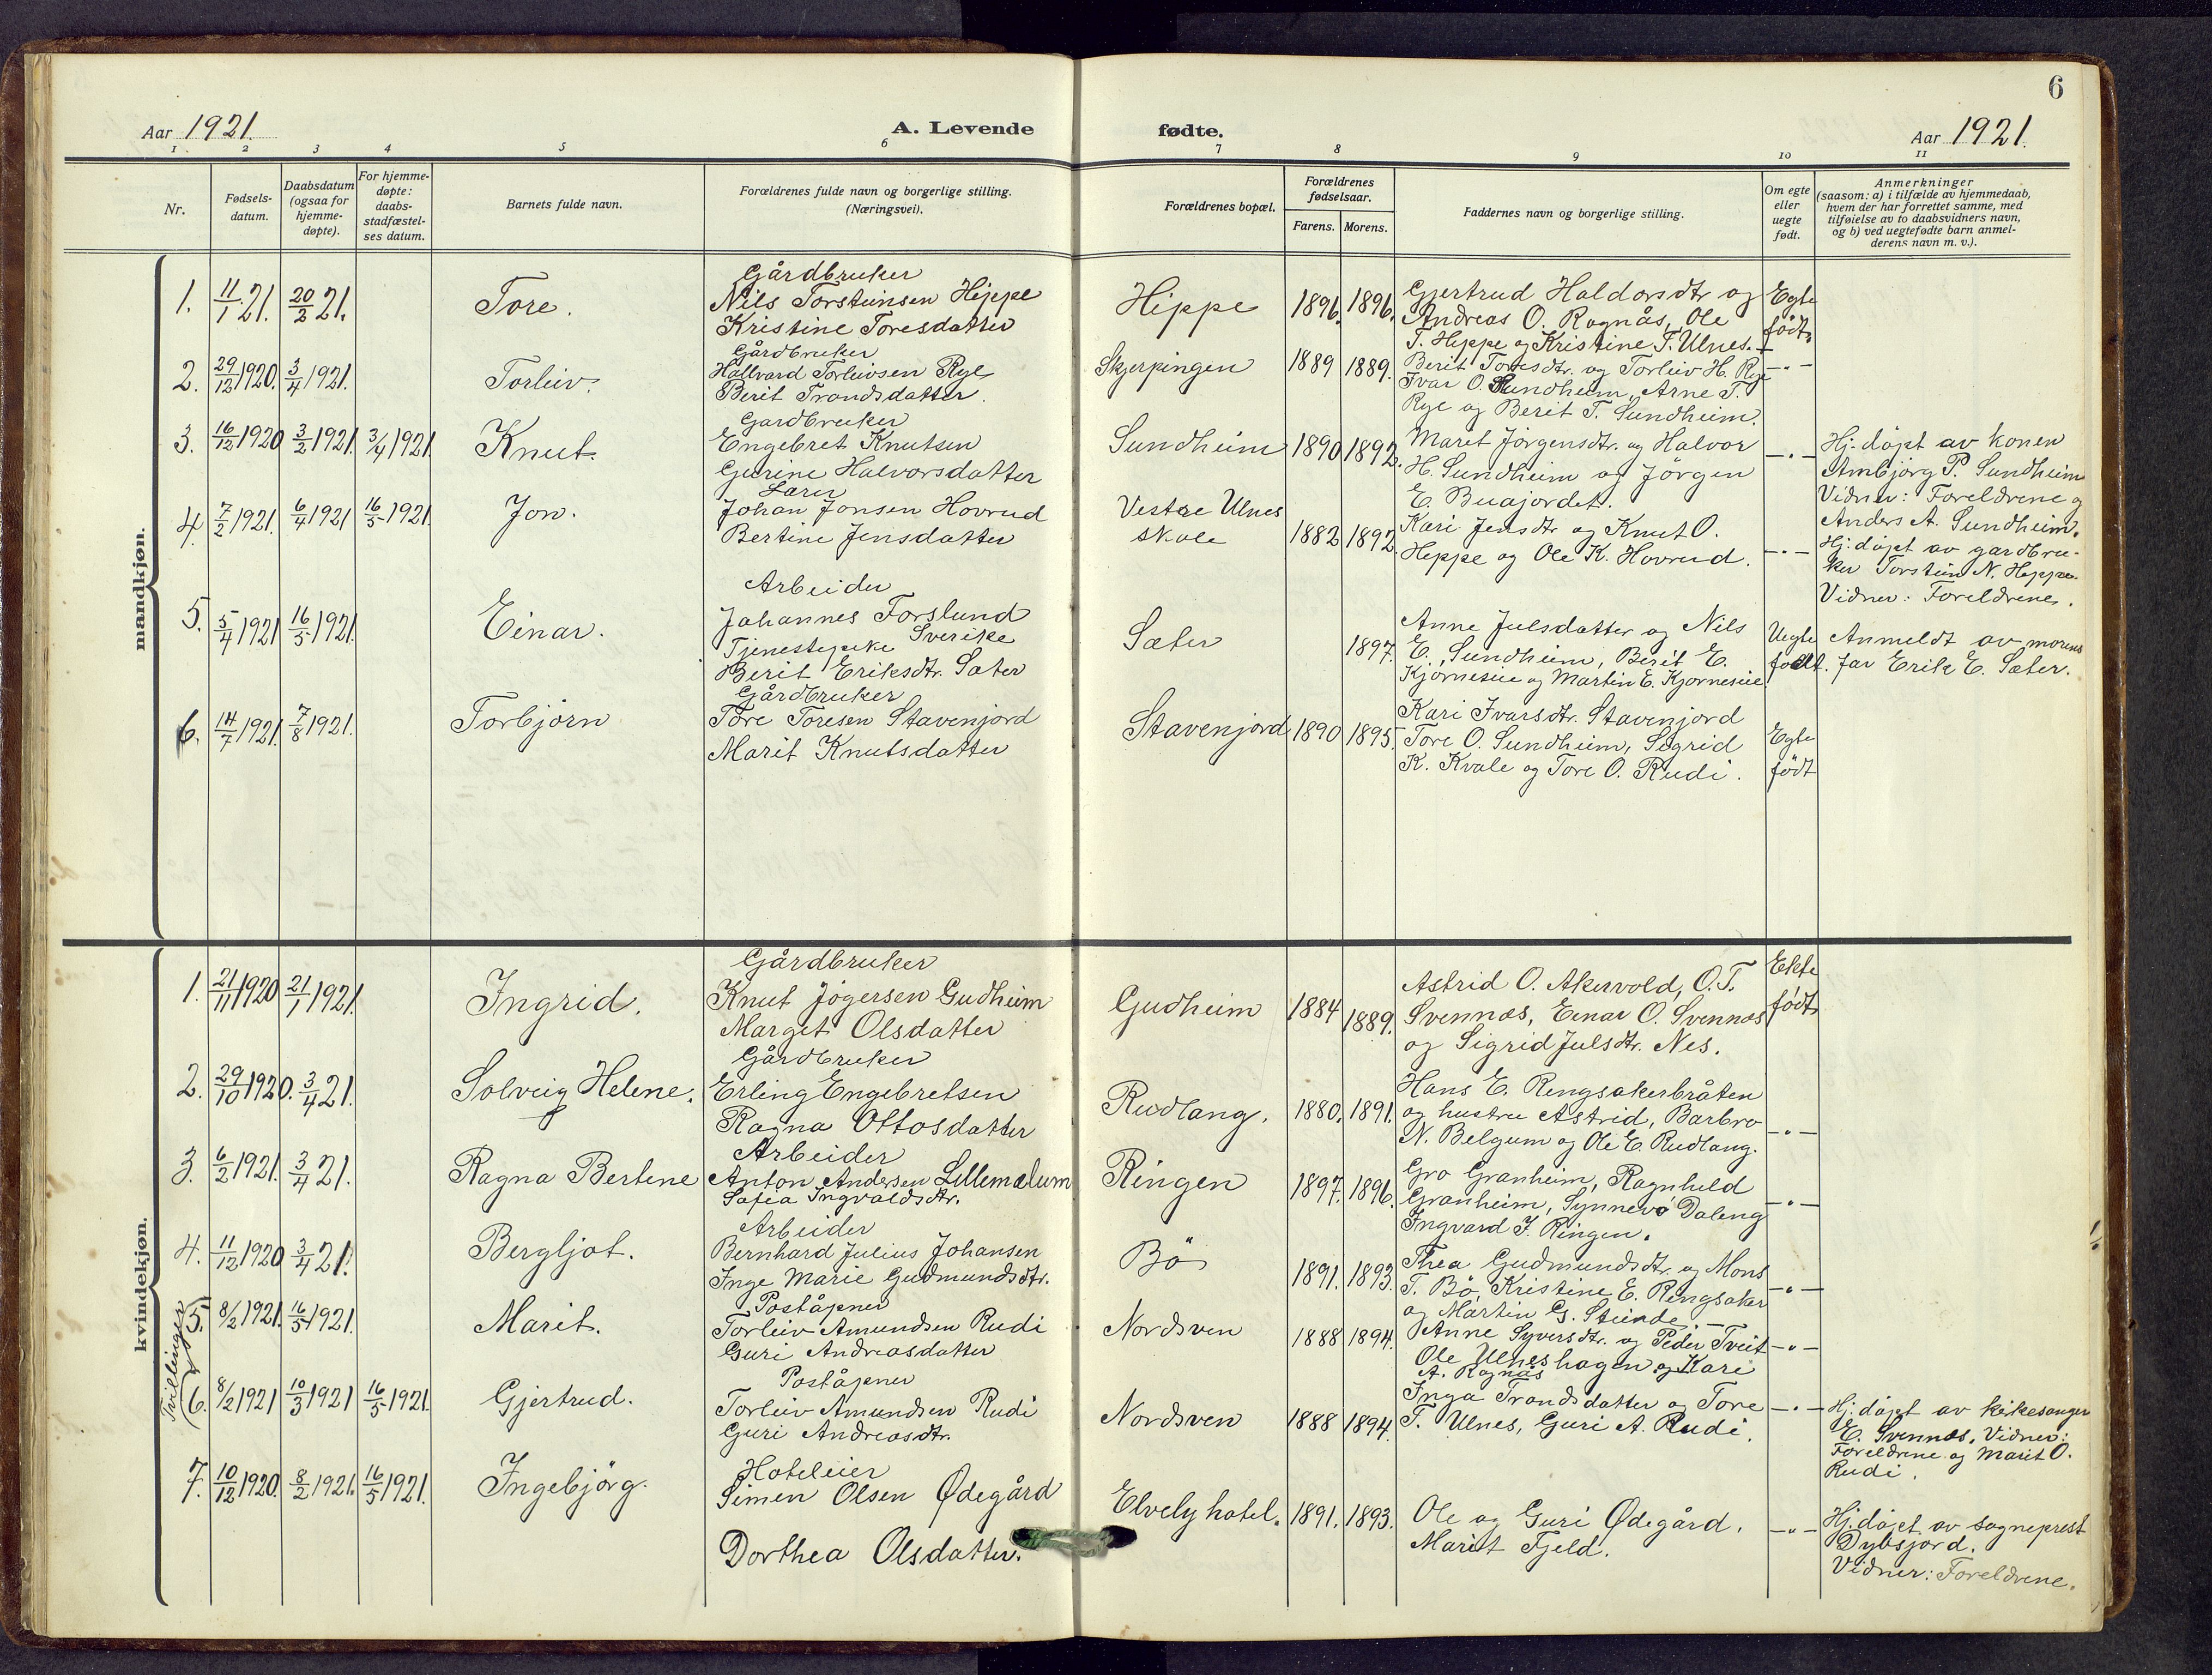 6
Aar 1921.
A. Levende
fødte.
Aar 1921.
1 2 3 4 5 6 7 8 9 10 11
Nr.
Fødsels-
datum.
Daabsdatum
(ogsaa for
hjemme-
døpte).
For hjemme-
døpte:
daabs-
stadfæstel-
ses datum.
Barnets fulde navn.
Forældrenes fulde navn og borgerlige stilling.
(Næringsvei).
Forældrenes bopæl.
Forældrenes
fødselsaar.
Farens. Morens.
Faddernes navn og borgerlige stilling.
Om egte
eller
uegte
født.
Anmerkninger
(saasom: a) i tilfælde av hjemmedaab,
hvem der har forrettet samme, med
tilføielse av to daabsvidners navn,
og b) ved uegtefødte barn anmel-
derens navn m. v.).
mandkjøn.
1. 11/1 21. 20/2 21. Tore.
Gårdbruker
Nils Torsteinsen Hippe
Kristine Toresdatter
Hippe 1896. 1896.
Gjertrud Haldorsdtr og
Andreas O. Ragnås, Ole
T. Hippe og Kristine T. Ulnes.
Egte
født.
2. 29/12 1920. 3/4 1921. Torleiv.
Gårdbruker
Hallvard Torleivsen Rye
Berit Trondsdatter.
Skjerpingen 1889 1889.
Berit Toresdtr. og Torleiv H. Rye
Ivar O. Sundheim, Arne T.
Rye og Berit T. Sundheim.
-"-
3. 16/12 1920 3/2 1921. 3/4 1921. Knut.
Gardbruker
Engebret Knutsen
Gurine Halvorsdatter
Sundheim 1890 1892.
Marit Jörgensdtr. og Halvor
H. Sundheim og Jörgen
E. Buajordet.
-"-
Hj. döpt av konen
Ambjörg P. Sundheim
Vidner: Foreldrene og
Anders A. Sundheim.
4. 7/2 1921. 6/4 1921 16/5 1921. Jon.
Lærer
Johan Jonsen Hovrud
Bertine Jensdatter
Vestre Ulnes
skole 1882 1892.
Kari Jensdtr og Knut O.
Hippe og Ole K. Hovrud.
-"-
Hj. döpt av gardbru-
ker Torstein N. Hippe.
Vidner: Foreldrene.
5. 5/4 1921 16/5 1921. Einar.
Arbeider
Johannes Forslund
Sverike
Tjenestepike
Berit Eriksdtr. Sæter
Sæter 1897.
Anne Julsdatter og Nils
E. Sundheim, Berit E.
Kjörneseie og Martin E. Kjörneseie.
Uegte
født.
Anmeldt av morens
far Erik E. Sæter.
6. 14/7 1921. 7/8 1921. Torbjörn
Gårdbruker
Tore Toresen Stavenjord
Marit Knutsdatter
Stavenjord 1890 1895.
Kari Ivarsdtr. Stavenjord
Tore O. Sundheim, Sigrid
K. Kvale og Tore O. Rudi.
Egte
født
kvindekjøn.
1. 21/11 1920 21/1 1921. Ingrid.
Gårdbruker
Knut Jögersen Gudheim
Marget Olsdatter
Gudheim 1884 1889.
Astrid O. Akervold, O. T.
Svennæs, Einar O. Svennæs
og Sigrid Julsdtr. Nes.
Ekte
født.
2. 29/10 1920. 3/4 21. Solveig Helene.
Gårdbruker
Erling Engebretsen
Ragna Ottosdatter
Rudlang. 1880. 1891.
Hans E. Ringsakerbråten
og hustru Astrid, Barbro
N. Belgum og Ole E. Rudlang.
-"-
3. 6/2 1921. 3/4 21. Ragna Bertine
Arbeider
Anton Andersen Lillemælum
Safia Ingvaldsdtr.
Ringen 1897. 1896.
Gro Granheim, Ragnhild
Granheim, Synnevö Daleng
Ingvard J. Ringen.
-"-
4. 11/12 1920 3/4 21. Bergljot.
Arbeider
Bernhard Julius Johansen
Inge Marie Gudmundsdtr.
Bö 1891. 1893.
Thea Gudmundsdtr. og Mons
T. Bö, Kristine E. Ringsaker
og Martin G. Steinde.
-"-
Tvillinger
5. 8/2 1921. 16/5 1921. Marit.
Poståpner
Torleiv Amundsen Rudi
Guri Andreasdatter
Nordsven 1888 1894.
Anne Syversdtr. og Peder Tveit
Ole Ulneshagen og Kari
A. Ragnås
-"-
6. 8/2 1921 10/3 1921 16/5 1921. Gjertrud.
Poståpner
Torleiv Amundsen Rudi
Guri Andreasdtr.
Nordsven 1888 1894.
Inga Trondsdatter og Tore
T. Ulnes, Guri A. Rudi.
-"-
Hj. döpt av kirkesanger
E. Svennæs. Vidner:
Foreldrene og Marit O.
Rudi.
7. 10/12 1920. 8/2 1921. 16/5 1921. Ingebjörg.
Hoteleier
Simen Olsen Ødegård
Dorthea Olsdatter.
Elvely hotel. 1891. 1893.
Ole og Guri Ødegård.
Marit Fjeld.
-"-
Hj. döpt av sogneprest
Dybsjord.
Vidner: Foreldrene.